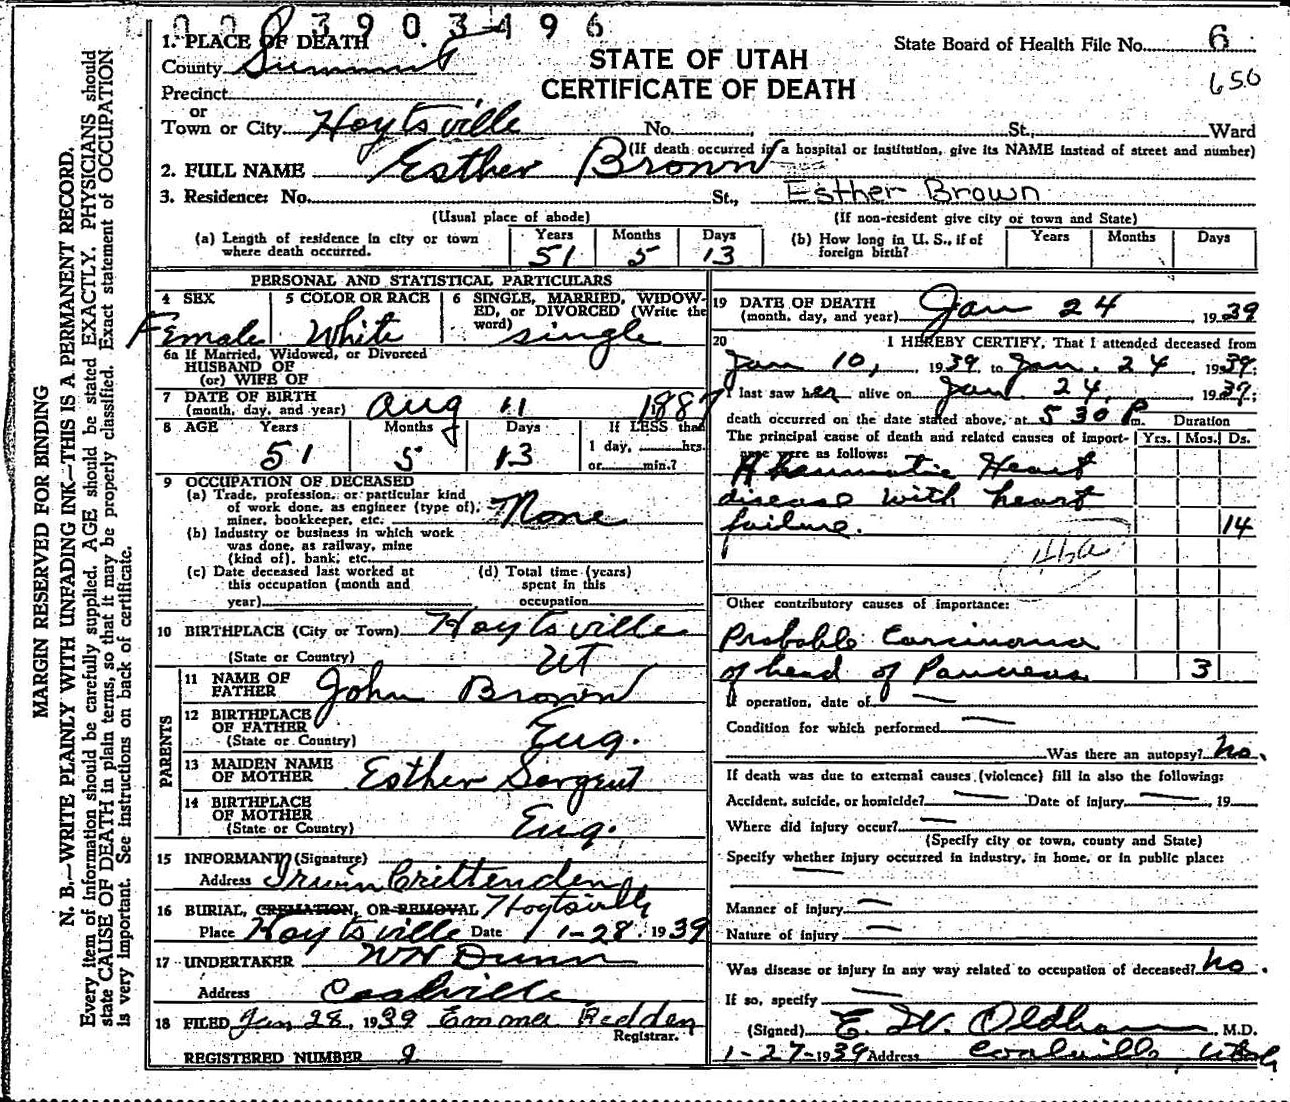 0 0 0 3 9 0 3 4 9 6
1. PLACE OF DEATH
County Summit
Precinct
or
Town or City Hoytsville No. , St., Ward
STATE OF UTAH
CERTIFICATE OF DEATH
State Board of Health File No. 6
650
(If death occurred in a hospital or institution, give its NAME instead of street and number)
2. FULL NAME Esther Brown
3. Residence: No. St., Esther Brown
(Usual place of abode) (If non-resident give city or town and State)
(a) Length of residence in city or town where death occurred. Years 51 Months 5 Days 13
(b) How long in U. S., if of foreign birth? Years Months Days
PERSONAL AND STATISTICAL PARTICULARS
4 SEX Female
5 COLOR OR RACE White
6 SINGLE, MARRIED, WIDOWED, or DIVORCED (Write the word) single
6a If Married, Widowed, or Divorced
HUSBAND OF
(or) WIFE OF
7 DATE OF BIRTH
(month, day, and year) Aug 11 1887
8 AGE Years 51 Months 5 Days 13 If LESS than
1 day, hrs.
or min.?
9 OCCUPATION OF DECEASED
(a) Trade, profession, or particular kind
of work done, as engineer (type of),
miner, bookkeeper, etc. None
(b) Industry or business in which work
was done, as railway, mine
(kind of), bank, etc.
(c) Date deceased last worked at
this occupation (month and
year)
(d) Total time (years)
spent in this
occupation
10 BIRTHPLACE (City or Town) Hoytsville
(State or Country) UT
PARENTS
11 NAME OF
FATHER John Brown
12 BIRTHPLACE
OF FATHER
(State or Country) Eng.
13 MAIDEN NAME
OF MOTHER Esther Sargent
14 BIRTHPLACE
OF MOTHER
(State or Country) Eng.
15 INFORMANT (Signature)
Address Irwin Crittenden
16 BURIAL, CREMATION, OR REMOVAL Hoytsville
Place Hoytsville Date 1-28- 1939
17 UNDERTAKER W H Dunn
Address Coalville
18 FILED Jan 28, 1939 Emma Redden
Registrar.
REGISTERED NUMBER
19 DATE OF DEATH
(month, day, and year) Jan 24 1939
20 I HEREBY CERTIFY, That I attended deceased from
Jan 10, 1939 to Jan. 24, 1939;
I last saw her alive on Jan 24, 1939;
death occurred on the date stated above, at 5 30 P m. Duration
The principal cause of death and related causes of importance were as follows: Yrs. Mos. Ds.
Rheumatic Heart
disease with heart
failure. 14
Other contributory causes of importance:
Probable Carcinoma
of head of Pancreas 3
If operation, date of —
Condition for which performed —
Was there an autopsy? No.
If death was due to external causes (violence) fill in also the following:
Accident, suicide, or homicide? — Date of injury — , 19
Where did injury occur? —
(Specify city or town, county and State)
Specify whether injury occurred in industry, in home, or in public place:
—
Manner of injury —
Nature of injury —
Was disease or injury in any way related to occupation of deceased? No.
If so, specify —
(Signed) E. W. Oldham , M.D.
1-27-1939 Address Coalville Utah
MARGIN RESERVED FOR BINDING
N. B.—WRITE PLAINLY WITH UNFADING INK—THIS IS A PERMANENT RECORD.
Every item of information should be carefully supplied. AGE should be stated EXACTLY. PHYSICIANS should
state CAUSE OF DEATH in plain terms, so that it may be properly classified. Exact statement of OCCUPATION
is very important. See instructions on back of certificate.